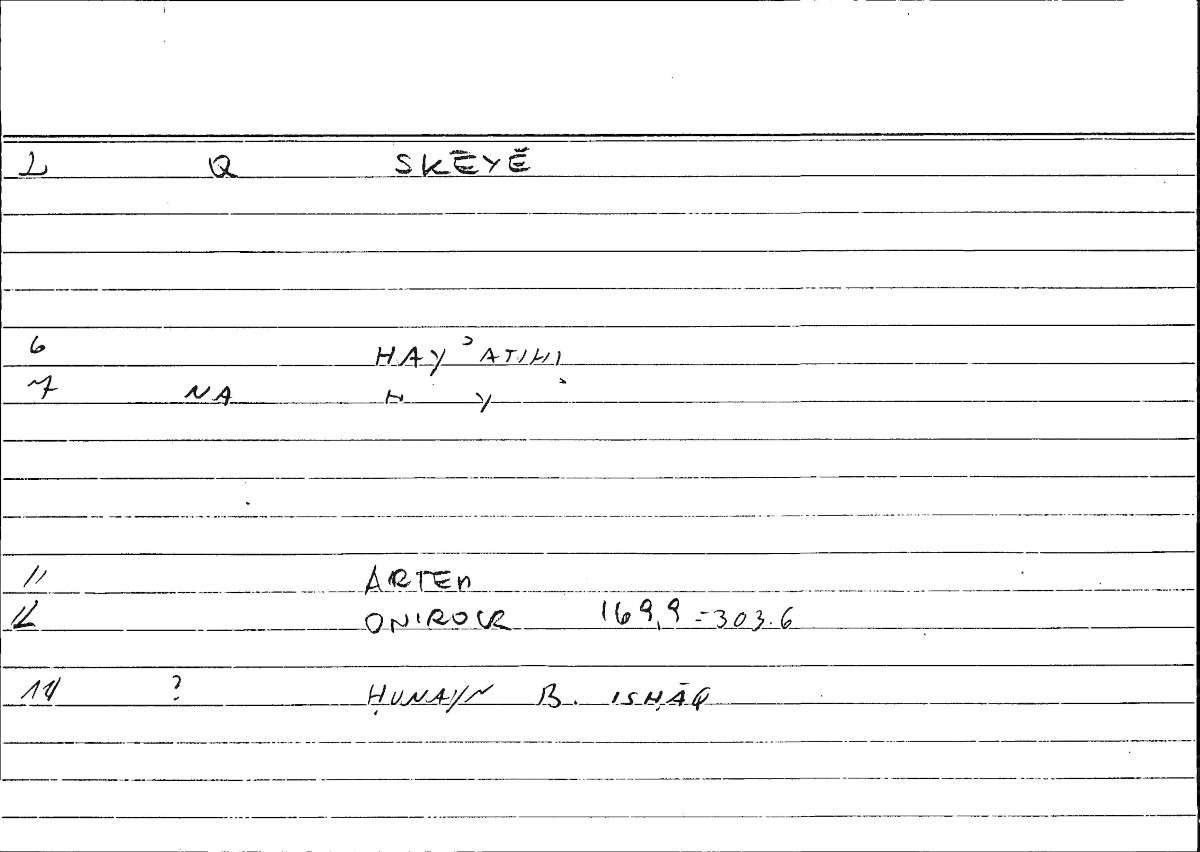 2 Q SKĒYĒ
6 HAYʾATIHI
7 NA H Y
11 ARTEM
12 ONIROCR 169,9 = 303.6
14 ? ḤUNAYN B. ISḤĀQ